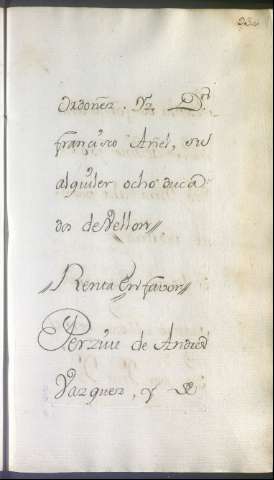 Ordoñez. Yz. Dn.
francisco Ariel, su
alquiler ocho duca
dos de Vellon//
//Renta en favor//
Perziue de Andres
Vazquez, y de